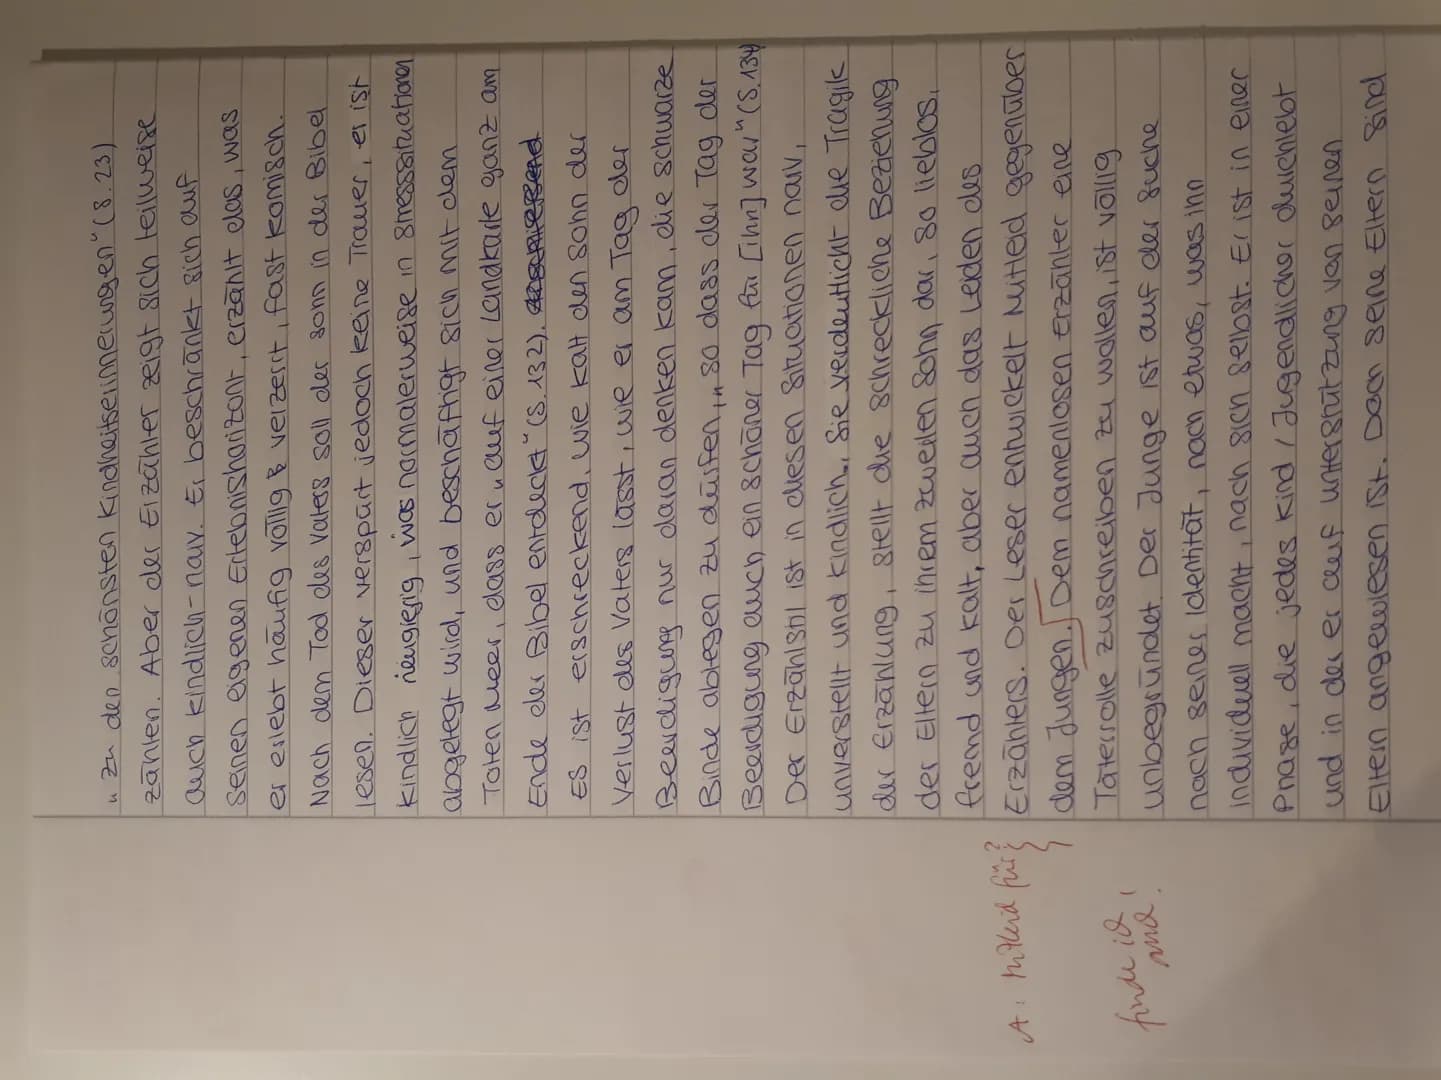 „Zu den schönsten Kindheitserinnerungen" (S. 23)
zählen. Aber der Erzähler zeigt sich teilweise
auch kindlich-naiv. Er beschränkt sich auf
seinen eigenen Erlebnishorizont, erzählt das, was
er erlebt häufig völlig verzerrt, fast komisch.
Nach dem Tod des Vaters soll der Sohn in der Bibel
lesen. Dieser verspürt jedoch keine Trauer, er ist
kindlich neugierig, was normalerweise in Stresssituationen
abgelegt wird, und beschäftigt sich mit dem
Toten Meer, dass er „auf einer Landkarte ganz am
Ende der Bibel entdeckt" (S. 132).
Es ist erschreckend, wie kalt den Sohn der
Verlust des Vaters lässt, wie er am Tag der
Beerdigung nur daran denken kann, die schwarze
Binde ablegen zu dürfen, „so dass der Tag der
Beerdigung auch ein schöner Tag für [ihn] war" (S. 134)
Der Erzählstil ist in diesen Situationen naiv,
unverstellt und kindlich. Sie verdeutlicht die Tragik
der Erzählung, stellt die schreckliche Beziehung
der Eltern zu ihrem zweiten Sohn dar, so lieblos,
fremd und kalt, aber auch das Leiden des
Erzählers. Der Leser entwickelt Mitleid gegenüber
dem Jungen. Dem namenlosen Erzähler eine
Täterrolle zuschreiben zu wollen, ist völlig
unbegründet. Der Junge ist auf der Suche
nach seiner Identität, nach etwas, was ihn
individuell macht, nach sich selbst. Er ist in einer
Phase, die jedes Kind / Jugendlicher durchlebt
und in der er auf Unterstützung von seinen
Eltern angewiesen ist. Doch seine Eltern sind
A: Mitleid für?
finde ich
auch!